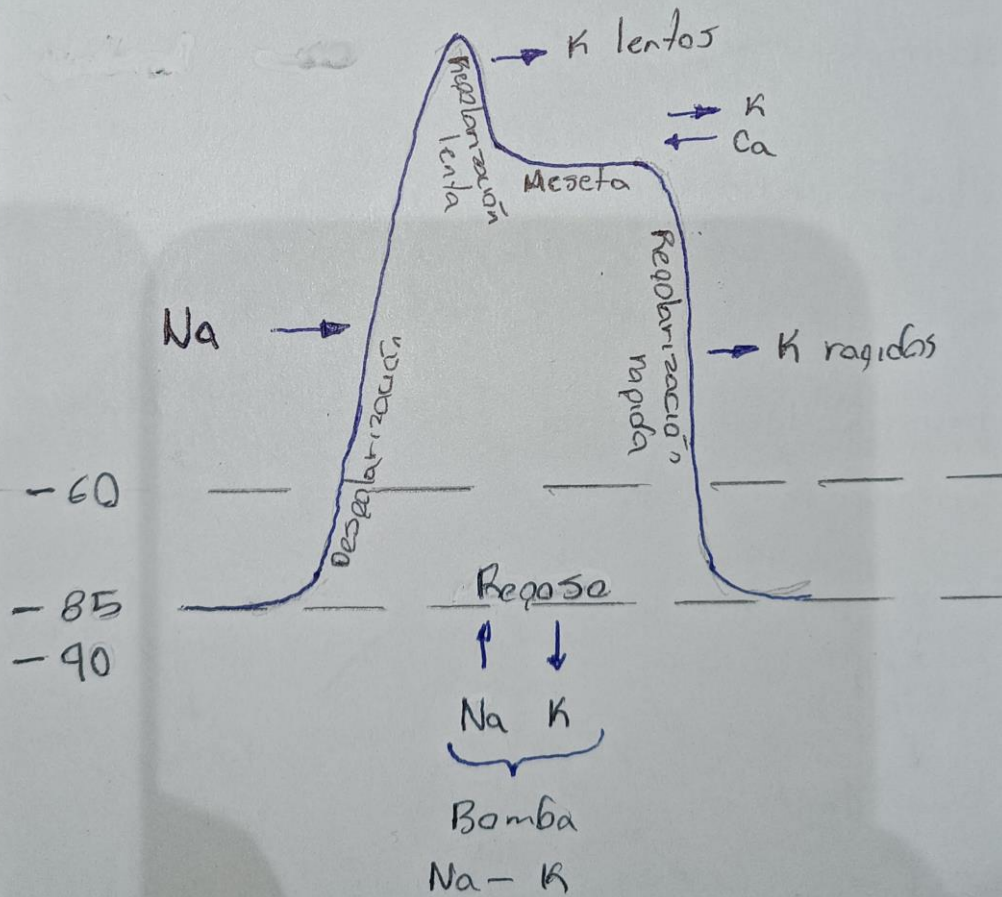 K lentos
Repolarización
lenta
K
Ca
Meseta
Na
Despolarización
Repolarización
rapida
K rapidos
-60
-85
Reposo
-90
Na K
Bomba
Na- K